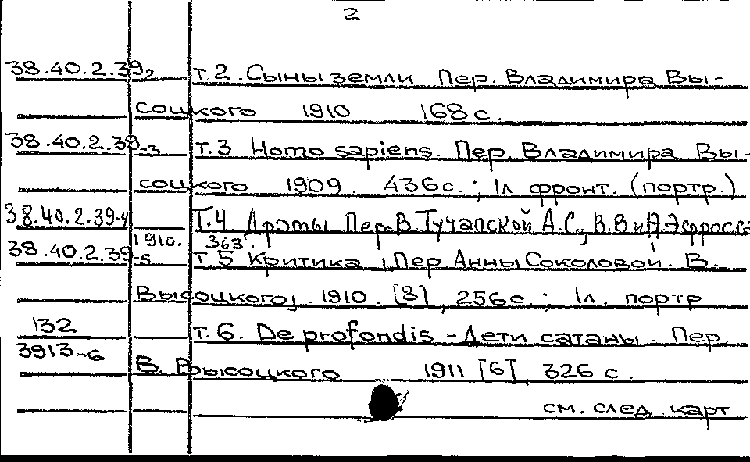 2
38.40.2.39-2 т.2. Сыны земли Пер. Владимира Вы-
соцкого 1910 168с.
38.40.2.39-3 т.3 Homo sapiens. Пер. Владимира Вы-
соцкого 1909. 436с.; 1л фронт. (портр.)
38.40.2.39-4 Т.4 Драмы Пер. В. Тучапской А.С., В.В и А. Эфросса
1910. 363.
38.40.2.39-5 т.5 Критика, Пер Анны Соколовой. В.
Высоцкого, 1910. [3], 256с.; 1л. портр
132 т.6. De profondis - Дети сатаны. Пер
3913-6 В. Высоцкого 1911 [6], 326 с.
см. след. карт